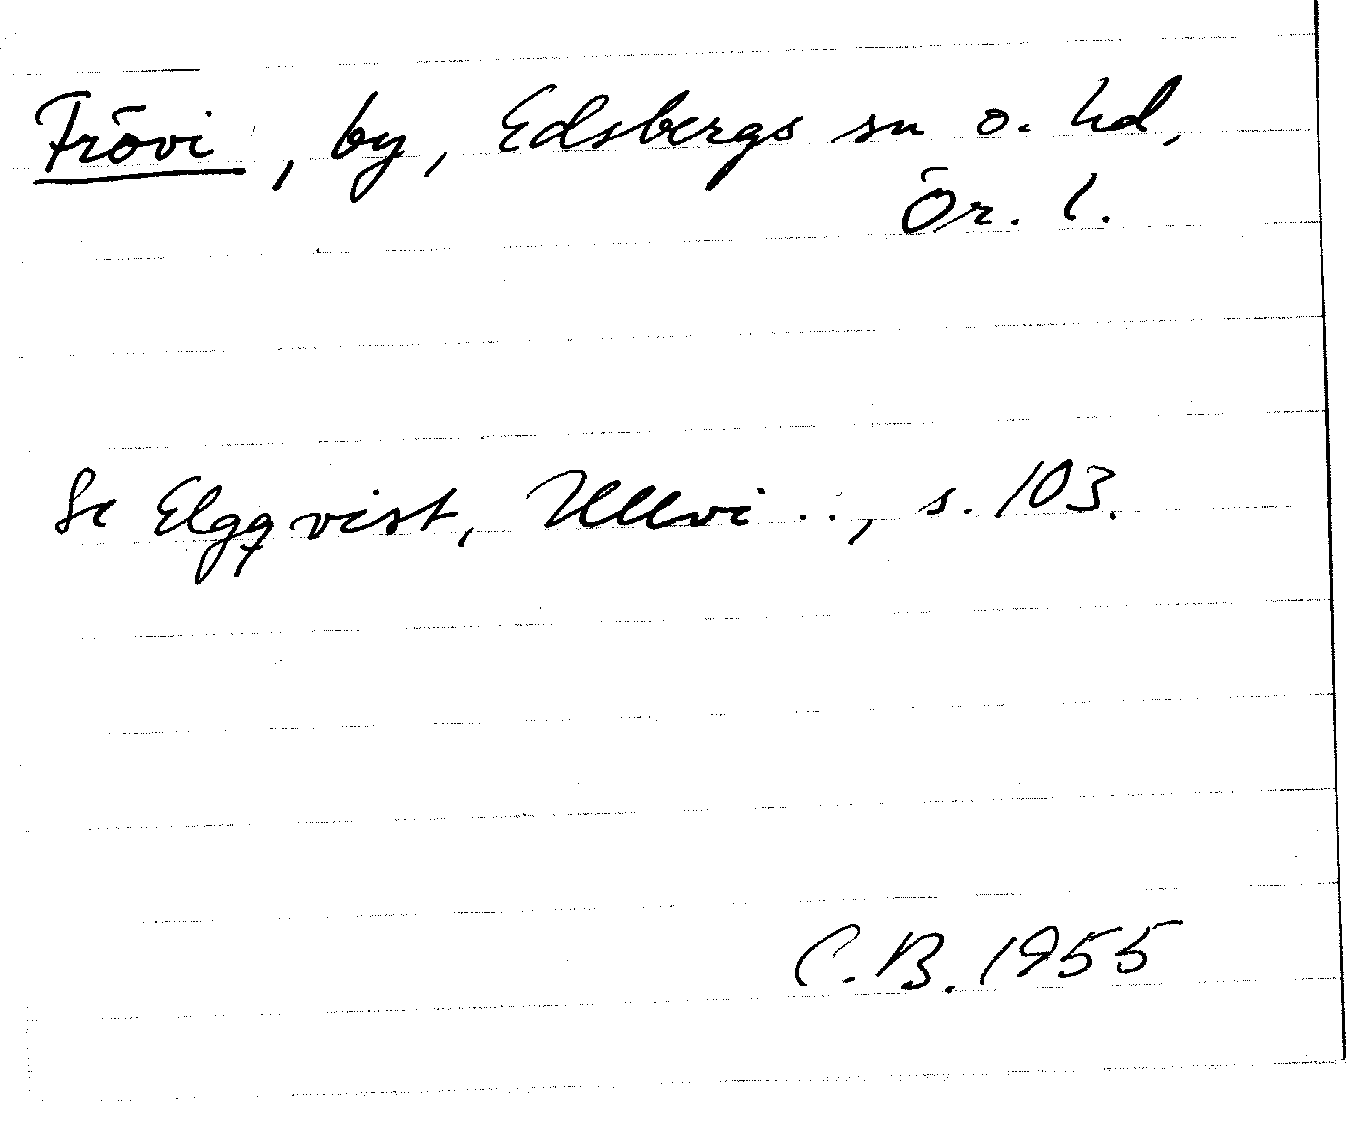 Frövi, by, Edsbergs sn o. hd,
Ör. l.
Se Elgqvist, Ullvi . ., s. 103.
C.B. 1955